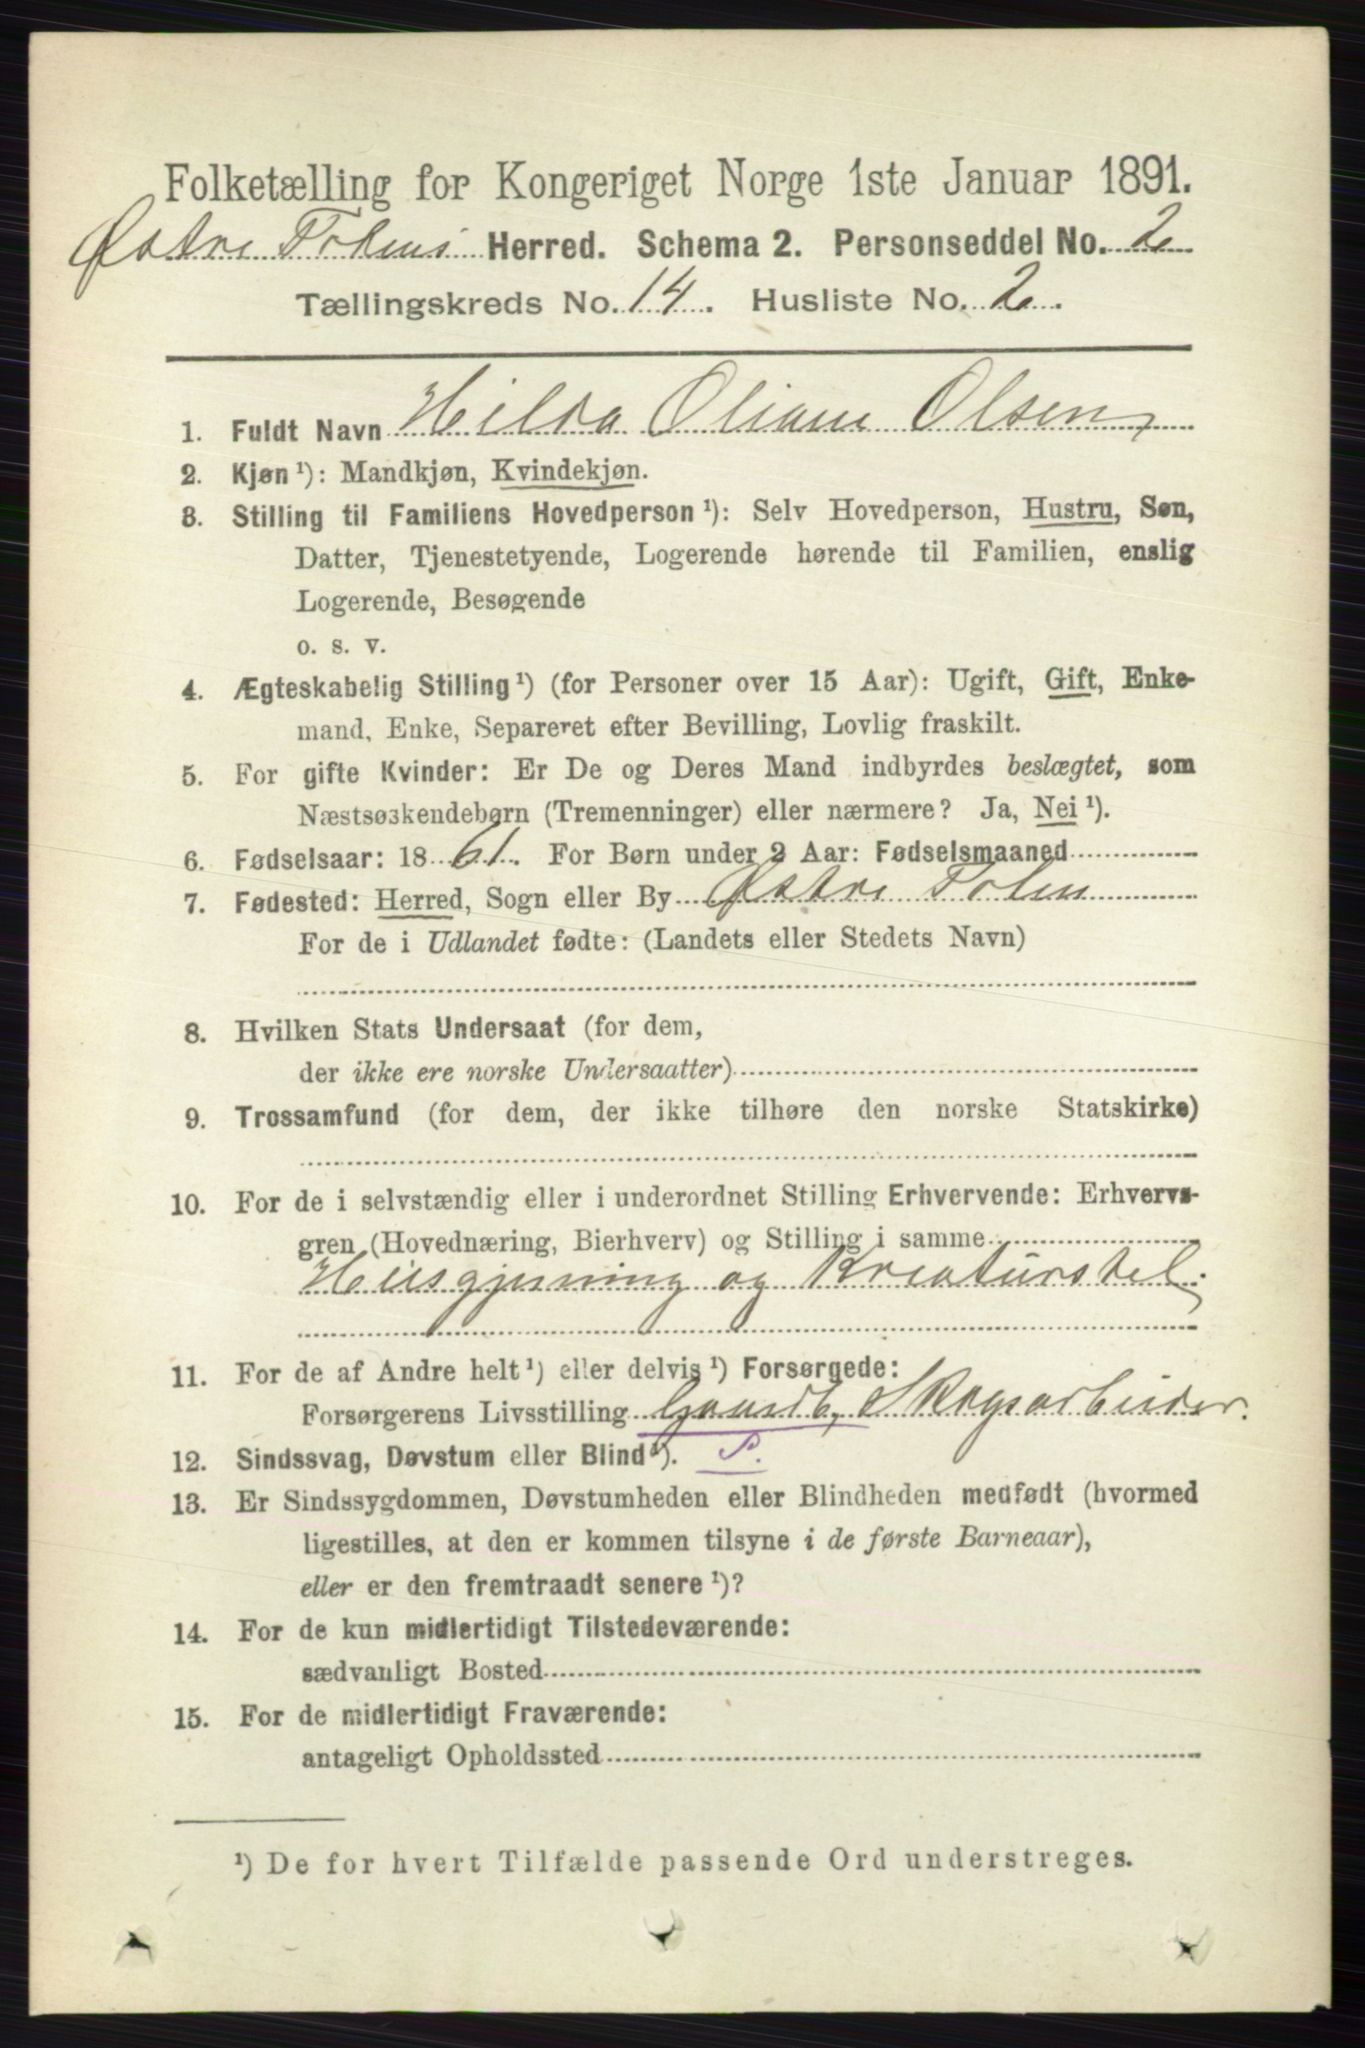 Folketælling for Kongeriget Norge 1ste Januar 1891.
Østre Totens Herred. Schema 2. Personseddel No. 2
Tællingskreds No. 14. Husliste No. 2.
1. Fuldt Navn Hilda Oliane Olsen,
2. Kjøn ¹): Mandkjøn, Kvindekjøn.
3. Stilling til Familiens Hovedperson ¹): Selv Hovedperson, Hustru, Søn,
Datter, Tjenestetyende, Logerende hørende til Familien, enslig
Logerende, Besøgende
o. s. v.
4. Ægteskabelig Stilling ¹) (for Personer over 15 Aar): Ugift, Gift, Enke-
mand, Enke, Separeret efter Bevilling, Lovlig fraskilt.
5. For gifte Kvinder: Er De og Deres Mand indbyrdes beslægtet, som
Næstsøskendebørn (Tremenninger) eller nærmere? Ja, Nei ¹).
6. Fødselsaar: 1861. For Børn under 2 Aar: Fødselsmaaned
7. Fødested: Herred, Sogn eller By Østre Toten
For de i Udlandet fødte: (Landets eller Stedets Navn)
8. Hvilken Stats Undersaat (for dem,
der ikke ere norske Undersaatter)
9. Trossamfund (for dem, der ikke tilhøre den norske Statskirke)
10. For de i selvstændig eller i underordnet Stilling Erhvervende: Erhvervs-
gren (Hovednæring, Bierhverv) og Stilling i samme
Husgjerning og Kreaturstel.
11. For de af Andre helt ¹) eller delvis ¹) Forsørgede:
Forsørgerens Livsstilling Gaardb, Skogsarbeider.
12. Sindssvag, Døvstum eller Blind ¹).
13. Er Sindssygdommen, Døvstumheden eller Blindheden medfødt (hvormed
ligestilles, at den er kommen tilsyne i de første Barneaar),
eller er den fremtraadt senere ¹)?
14. For de kun midlertidigt Tilstedeværende:
sædvanligt Bosted
15. For de midlertidigt Fraværende:
antageligt Opholdssted
¹) De for hvert Tilfælde passende Ord understreges.